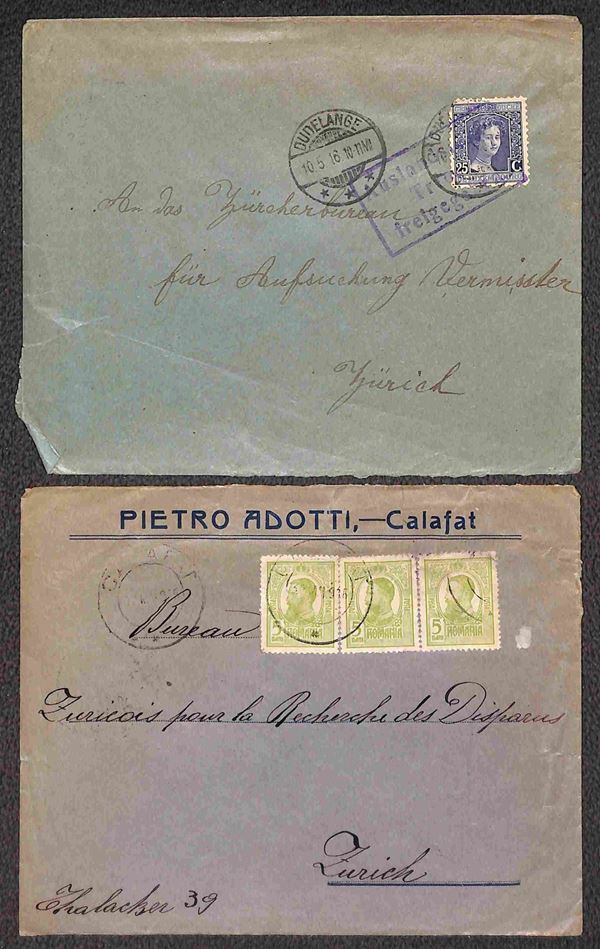 DUDELANGE
10.5.16.10-11
25 C
Ausla
Tr
freigege
An das Zürcherbureau
für Aufsuchung Vermisster
Zürich
PIETRO ADOTTI,—Calafat
5 BANI ROMANIA
5 BANI ROMANIA
5 BANI ROMANIA
Bureau
Zuricois pour la Recherche des Disparus
Zurich
Thalacker 39